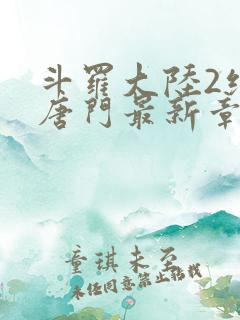 斗羅大陸2
唐門最新章
童琪未至
未经同意禁止搭讪